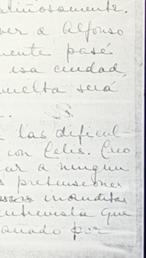 tiñosamente.
ver a Alfonso
mente pasé
esa ciudad,
vuelta será
las dificul-
con Celis. Creo
ar a ningun
s pretensiones
inauditas
entrevista que
por